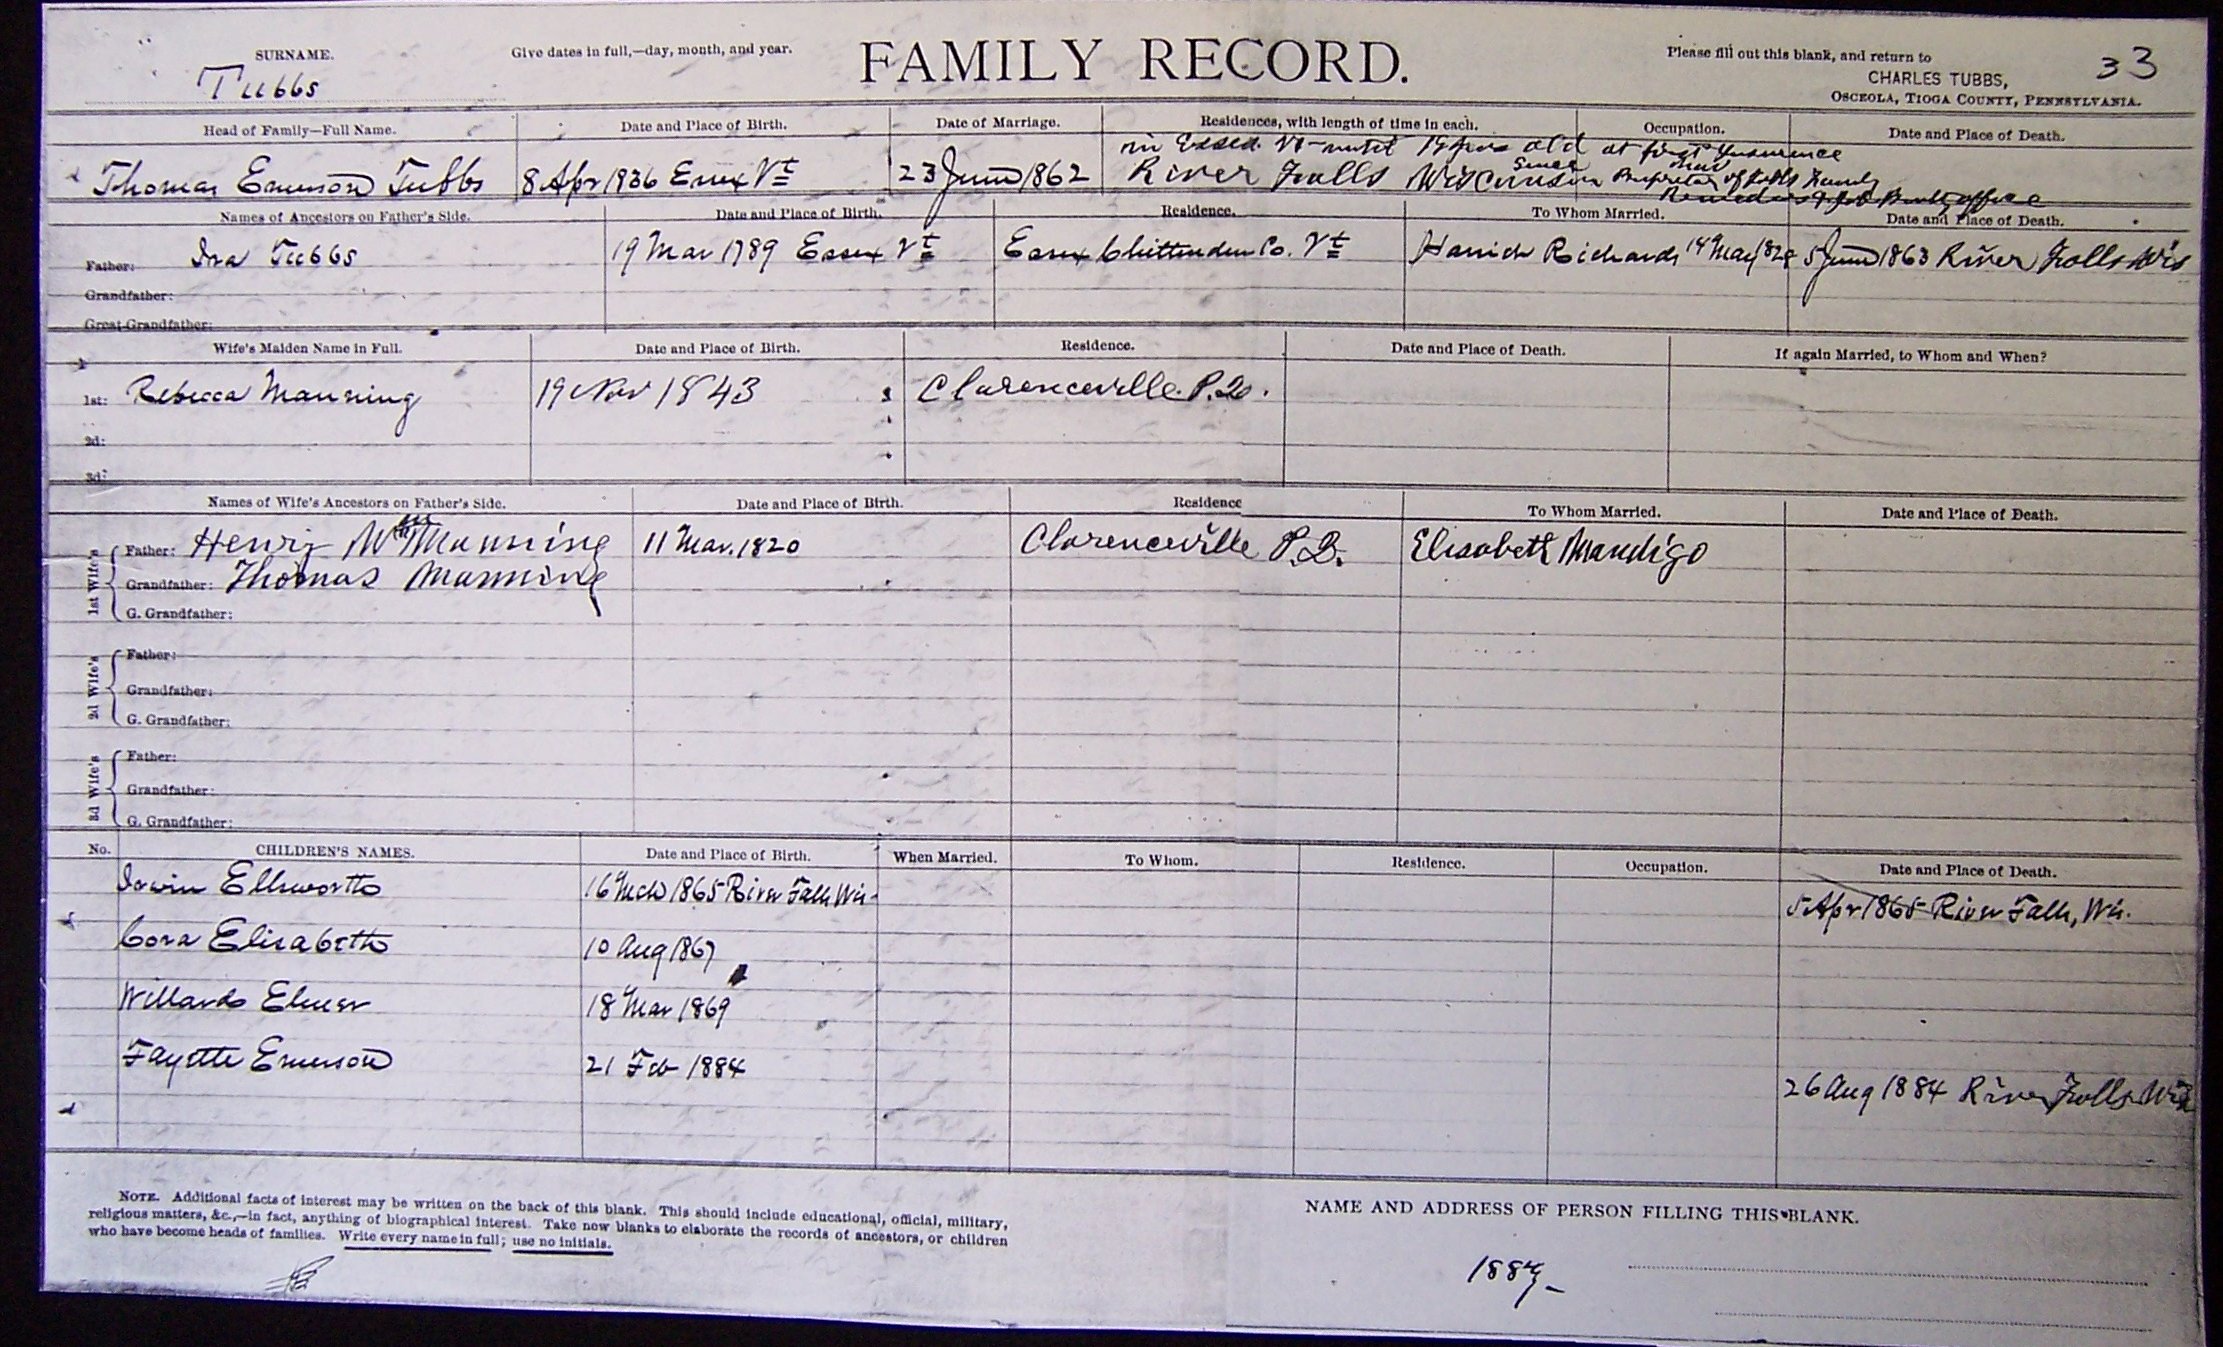 SURNAME.
Tubbs
Give dates in full,—day, month, and year.
FAMILY RECORD.
Please fill out this blank, and return to
CHARLES TUBBS,
OSCEOLA, TIOGA COUNTY, PENNSYLVANIA.
33
Head of Family—Full Name. Date and Place of Birth. Date of Marriage. Residences, with length of time in each. Occupation. Date and Place of Death.
in Essex Vt until 19 years old at first Insurance
Thomas Emerson Tubbs 8 Apr 1836 Essex Vt 23 June 1862 River Falls Wisconsin since
Proprietor of Tubbs Family
Remedies & Job office
Names of Ancestors on Father's Side. Date and Place of Birth. Residence. To Whom Married. Date and Place of Death.
Father: Ira Tubbs 19 Mar 1789 Essex Vt Essex Chittenden Co. Vt Richards 14 May 1828 5 June 1863 River Falls Wis
Grandfather:
Great-Grandfather:
Wife's Maiden Name in Full. Date and Place of Birth. Residence. Date and Place of Death. If again Married, to Whom and When?
1st: Rebecca Manning 19 Nov 1843 Clarenceville P.Q.
2d:
3d:
Names of Wife's Ancestors on Father's Side. Date and Place of Birth. Residence To Whom Married. Date and Place of Death.
1st Wife's
Father: Henry Wm Manning 11 Mar. 1820 Clarenceville P.Q. Elisabeth Mandigo
Grandfather: Thomas Manning
G. Grandfather:
2d Wife's
Father:
Grandfather:
G. Grandfather:
3d Wife's
Father:
Grandfather:
G. Grandfather:
No. CHILDREN'S NAMES. Date and Place of Birth. When Married. To Whom. Residence. Occupation. Date and Place of Death.
Irwin Ellsworth 16 Mch 1865 River Falls Wis. 5 Apr 1865 River Falls, Wis.
Cora Elisabeth 10 Aug 1867
Willard Elmer 18 Mar 1869
Fayette Emerson 21 Feb 1884 26 Aug 1884 River Falls Wis
NOTE. Additional facts of interest may be written on the back of this blank. This should include educational, official, military,
religious matters, &c.,—in fact, anything of biographical interest. Take new blanks to elaborate the records of ancestors, or children
who have become heads of families. Write every name in full; use no initials.
NAME AND ADDRESS OF PERSON FILLING THIS BLANK.